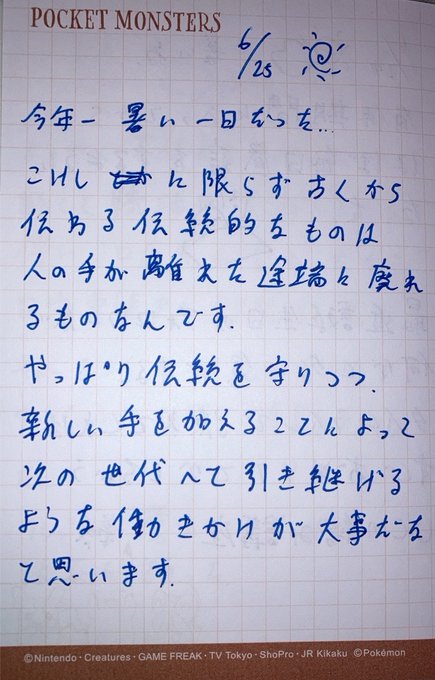 POCKET MONSTERS
6/25
今年一 暑い 一日だった…
こけし に 限らず 古くから
伝わる 伝統的な ものは
人の手が 離れた 途端に 廃れ
るものなんです.
やっぱり 伝統を 守りつつ.
新しい 手を加えることによって
次の 世代へと 引き継げる
ような 働きかけが 大事だな
と思います.
©Nintendo・Creatures・GAME FREAK・TV Tokyo・ShoPro・JR Kikaku ©Pokémon